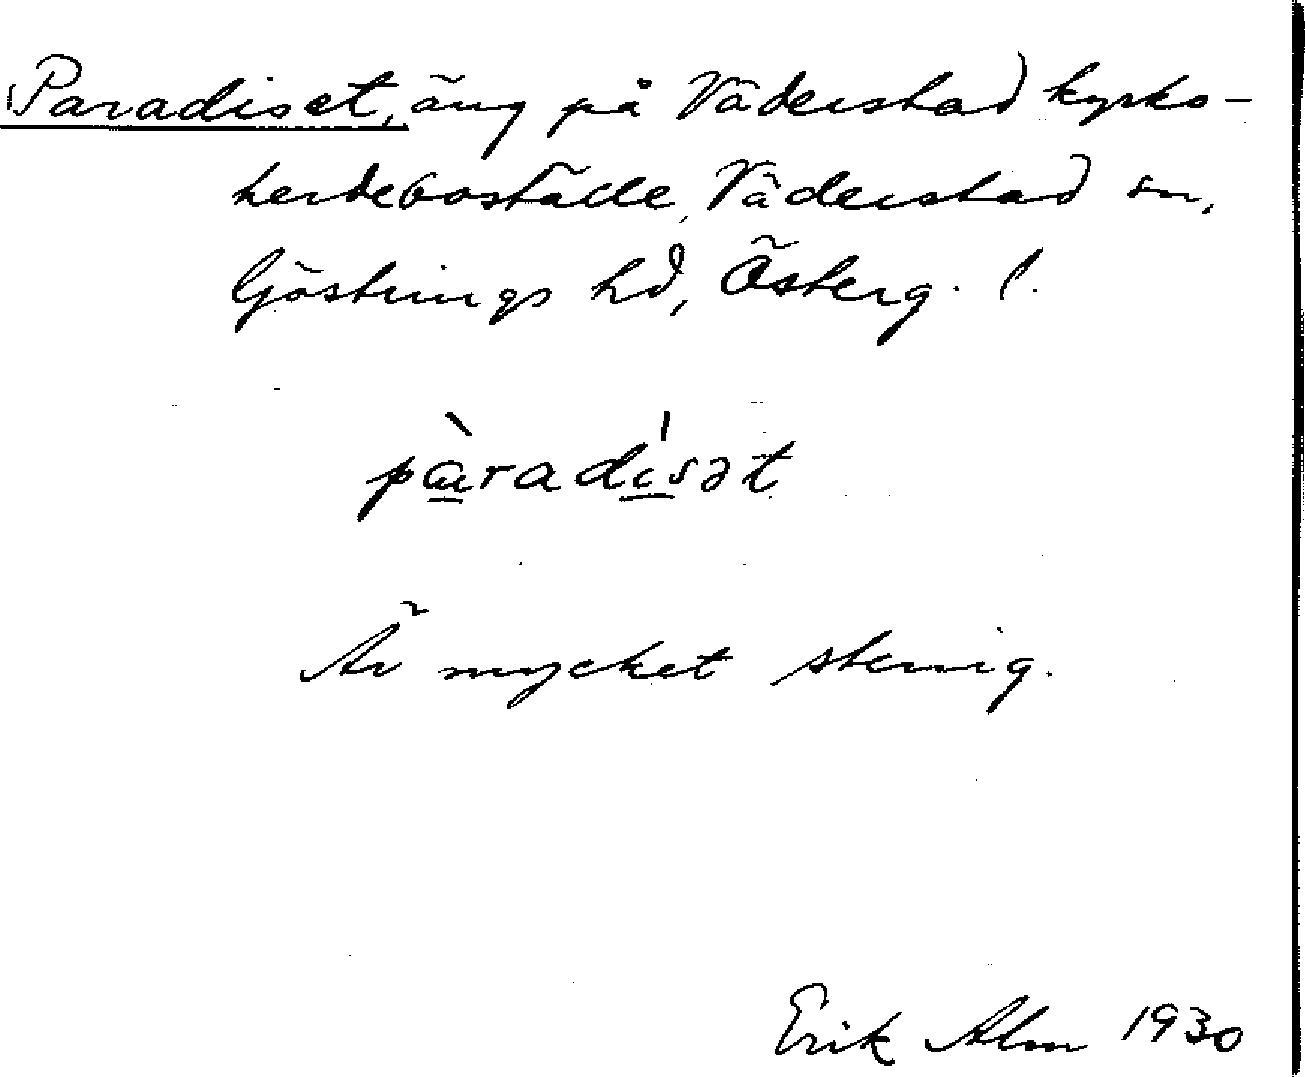 Paradiset, äng på Väderstad kyrko-
herdeboställe, Väderstad sn,
Göstrings hd, Österg. l.
pàradísət
Är mycket stenig.
Erik Alm 1930